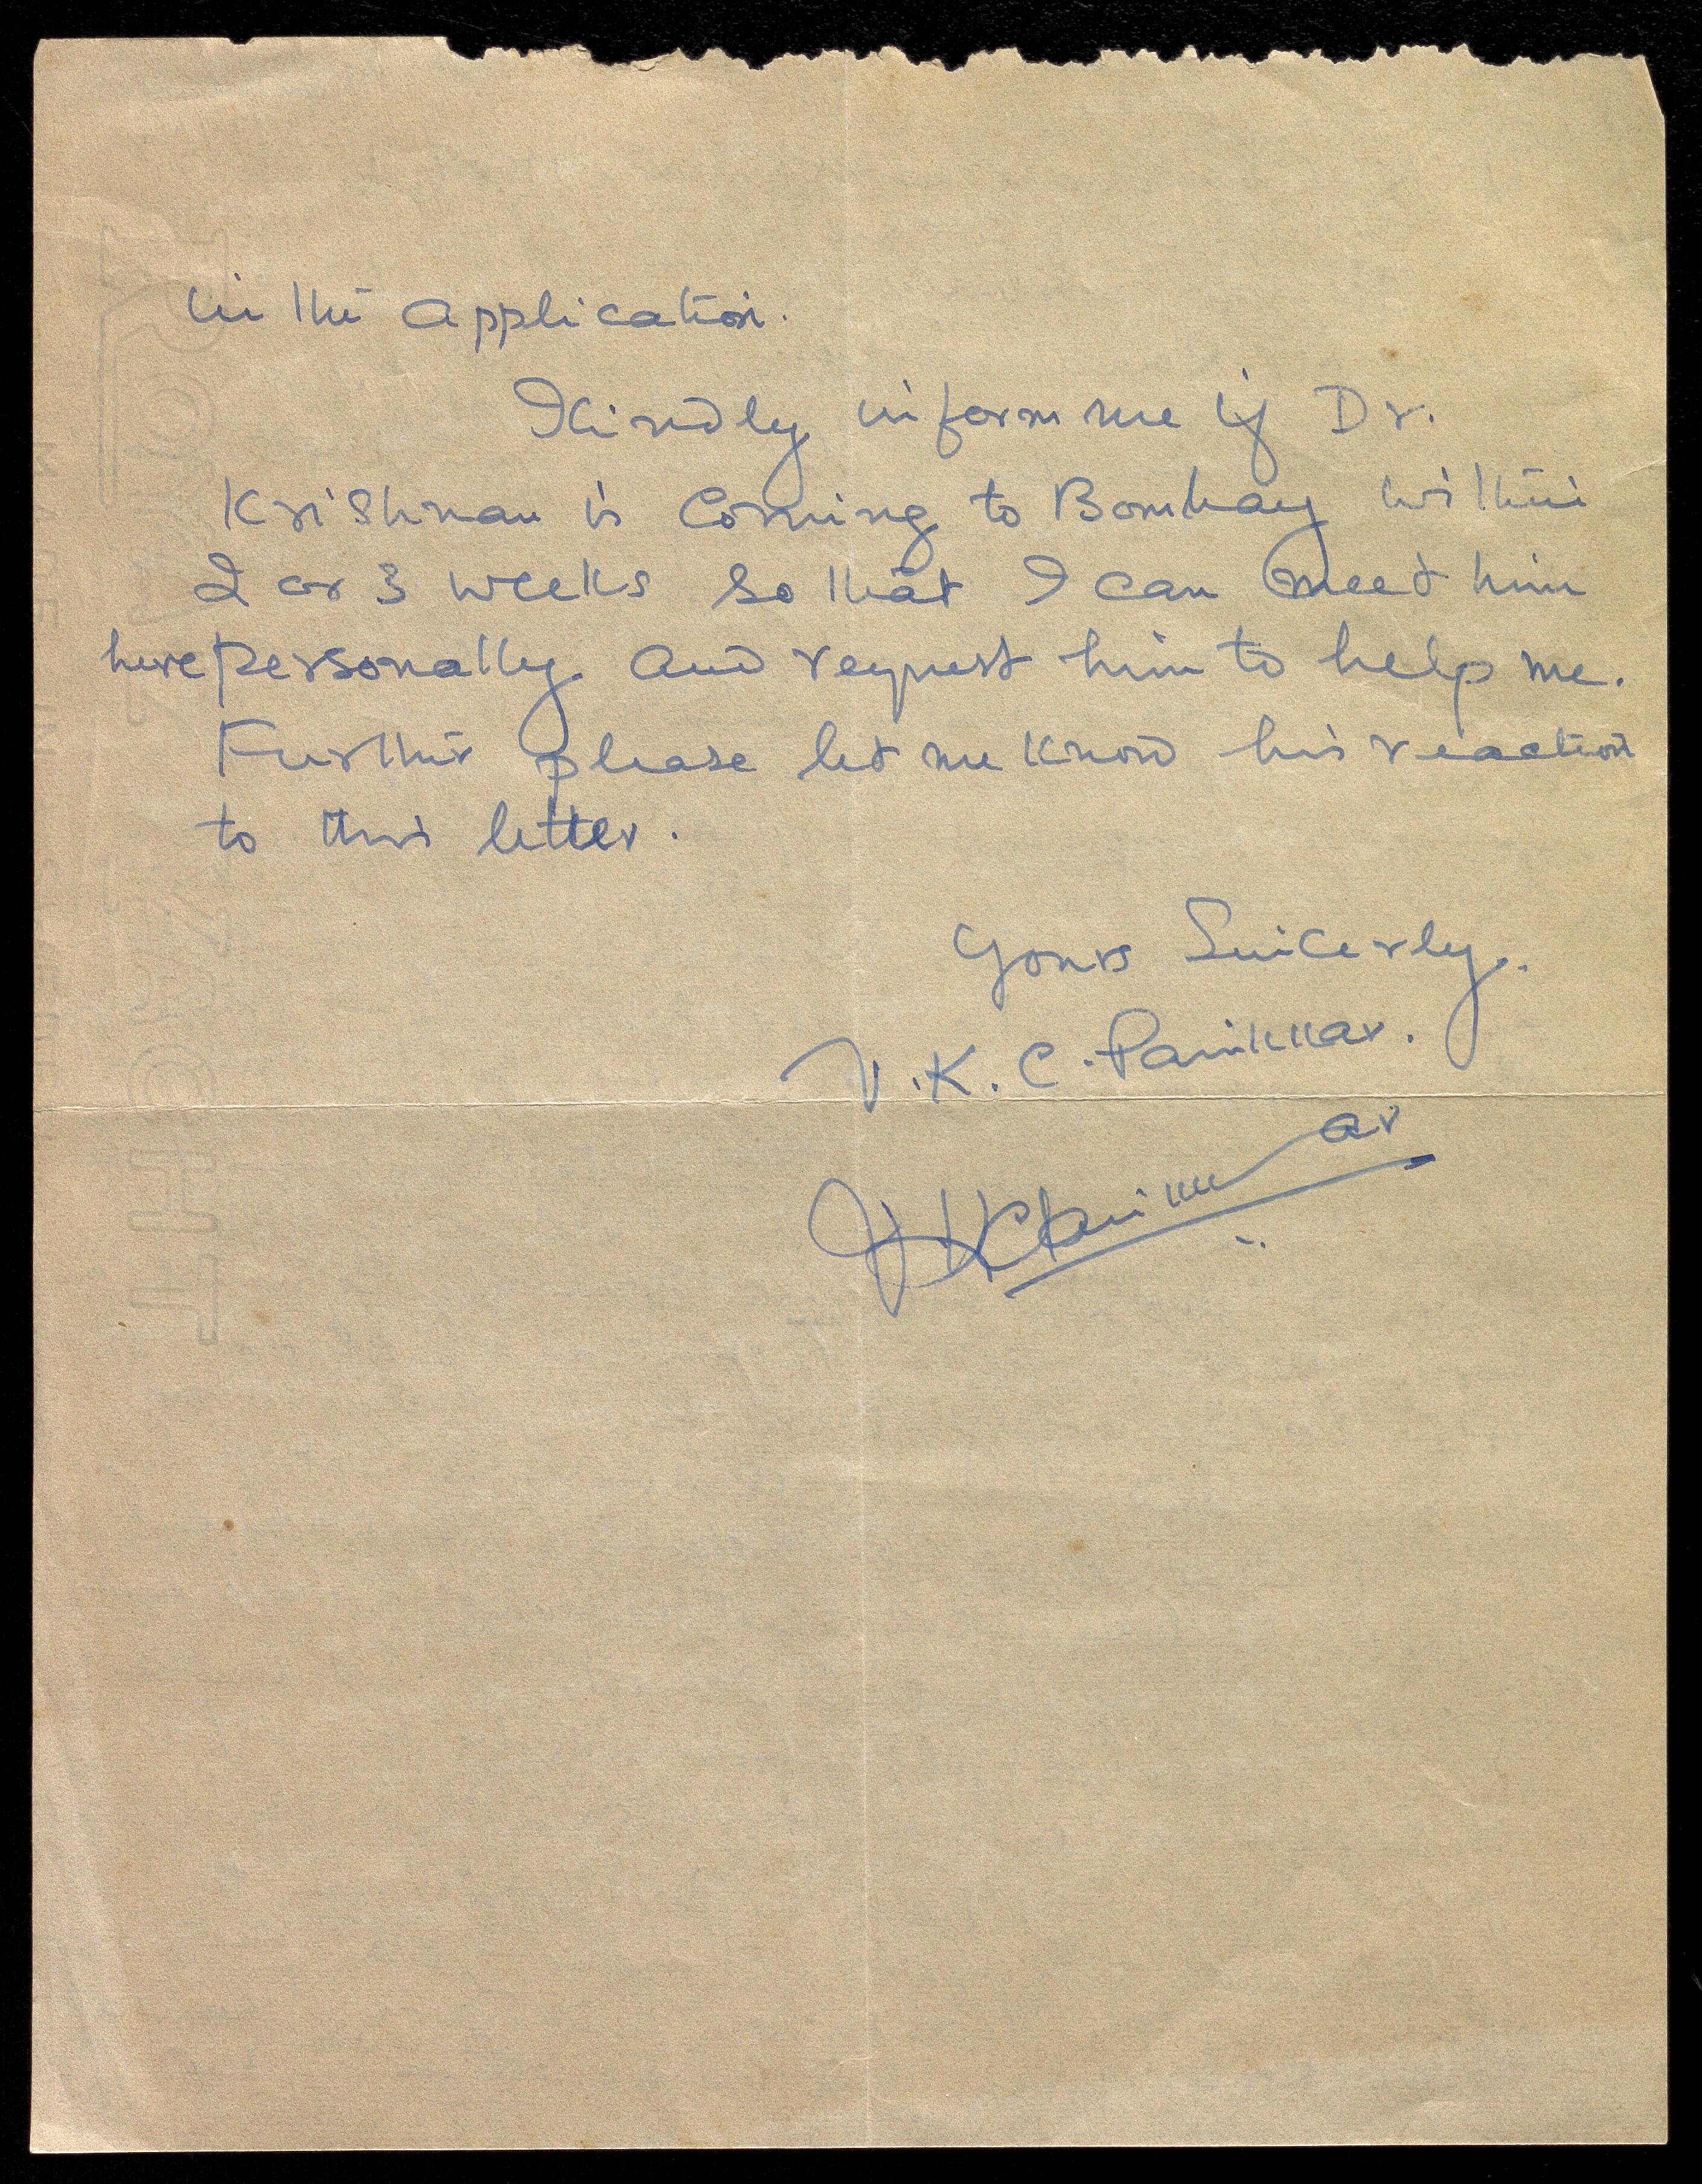 in the application.
Kindly inform me if Dr.
Krishnan is Coming to Bombay within
2 or 3 weeks so that I can meet him
here personally and request him to help me.
Further please let me know his reaction
to this letter.
Yours Sincerly.
V.K.C. Panikkar.
VKCPanikkar